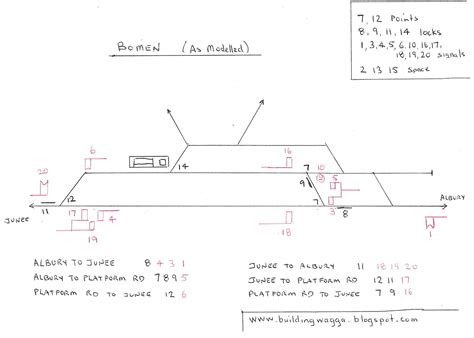 7, 12 Points
8, 9, 11, 14 locks
1, 3, 4, 5, 6, 10, 16, 17,
18, 19, 20 signals
2 13 15 Space
BOMEN (As Modelled)
6
16
7 10
2
5
20
14
9
12
ALBURY
11
17
4
7
3
8
JUNEE
19
18
1
ALBURY TO JUNEE 8 4 3 1
ALBURY TO PLATFORM RD 7 8 9 5
PLATFORM RD TO JUNEE 12 6
JUNEE TO ALBURY 11 18 19 20
JUNEE TO PLATFORM RD 12 11 17
PLATFORM RD TO JUNEE 7 9 16
www.buildingwagga.blogspot.com